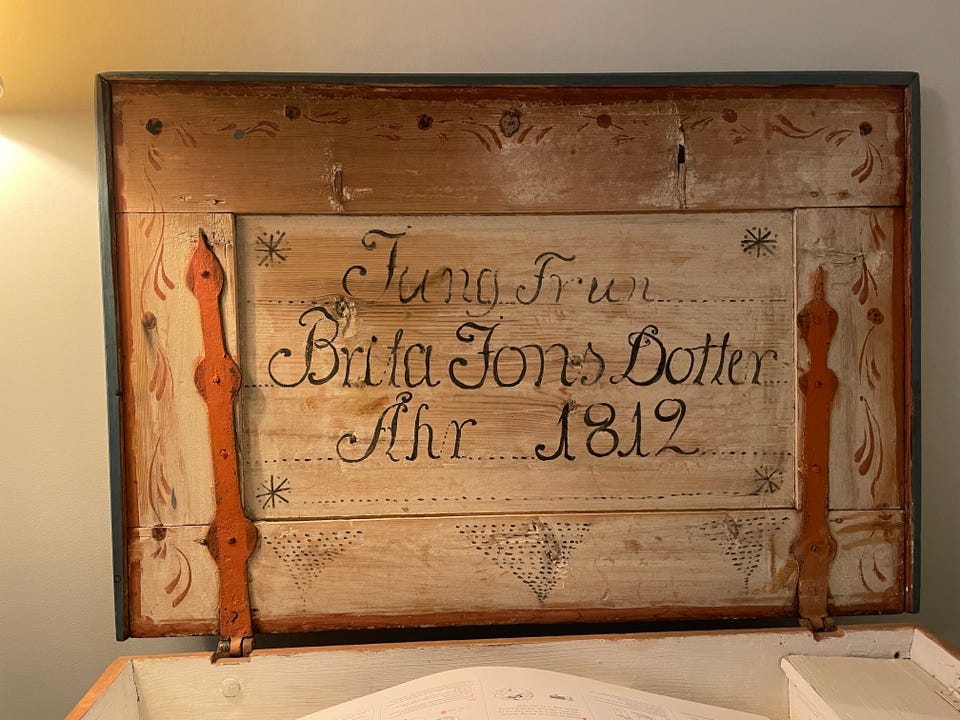 Jung Frun
Brita Jons Dotter
Åhr 1812